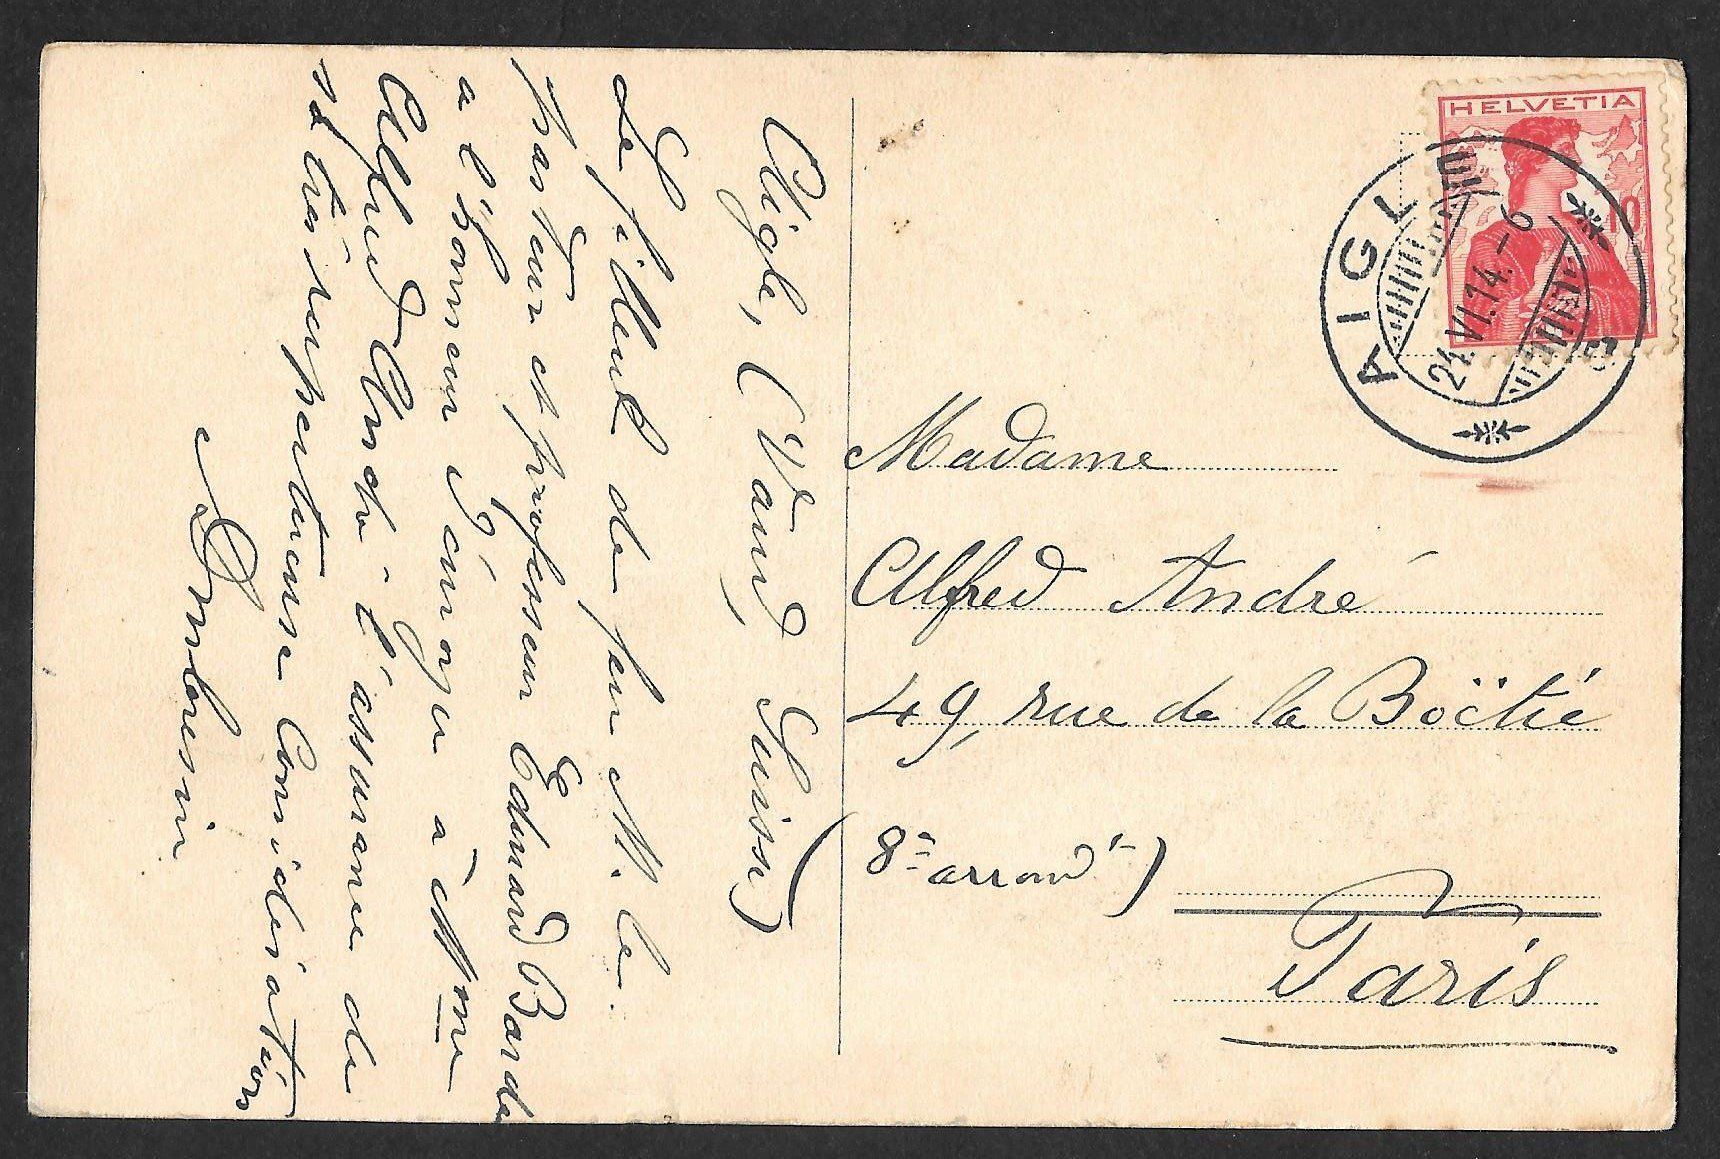 Aigle, (Vaud, Suisse)
Le filleul de feu M. le
pasteur et professeur Edmard Barde
a l'honneur d'envoyer à Mme
Alfred André l'assurance de
sa très respectueuse Considération
HELVETIA
10
AIGLE
24.VI.14.-6
Madame
Alfred André
49, rue de la Boëtie
(8e arrondt)
Paris